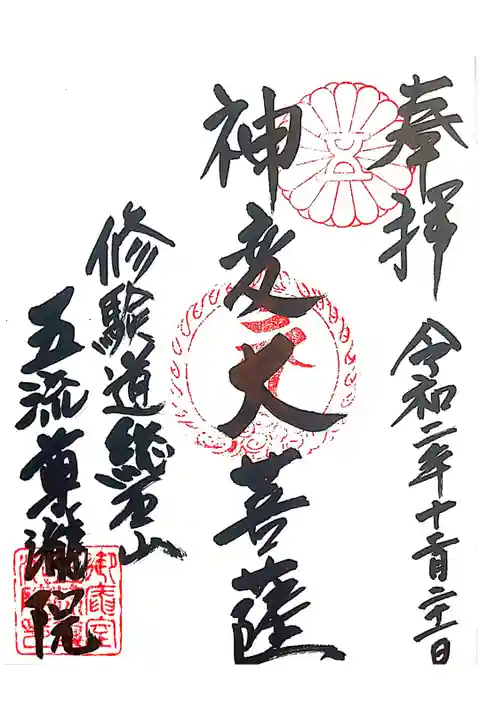 奉拝
令和二年十二月二十一日
神変大菩薩
修験道総本山
五流尊瀧院